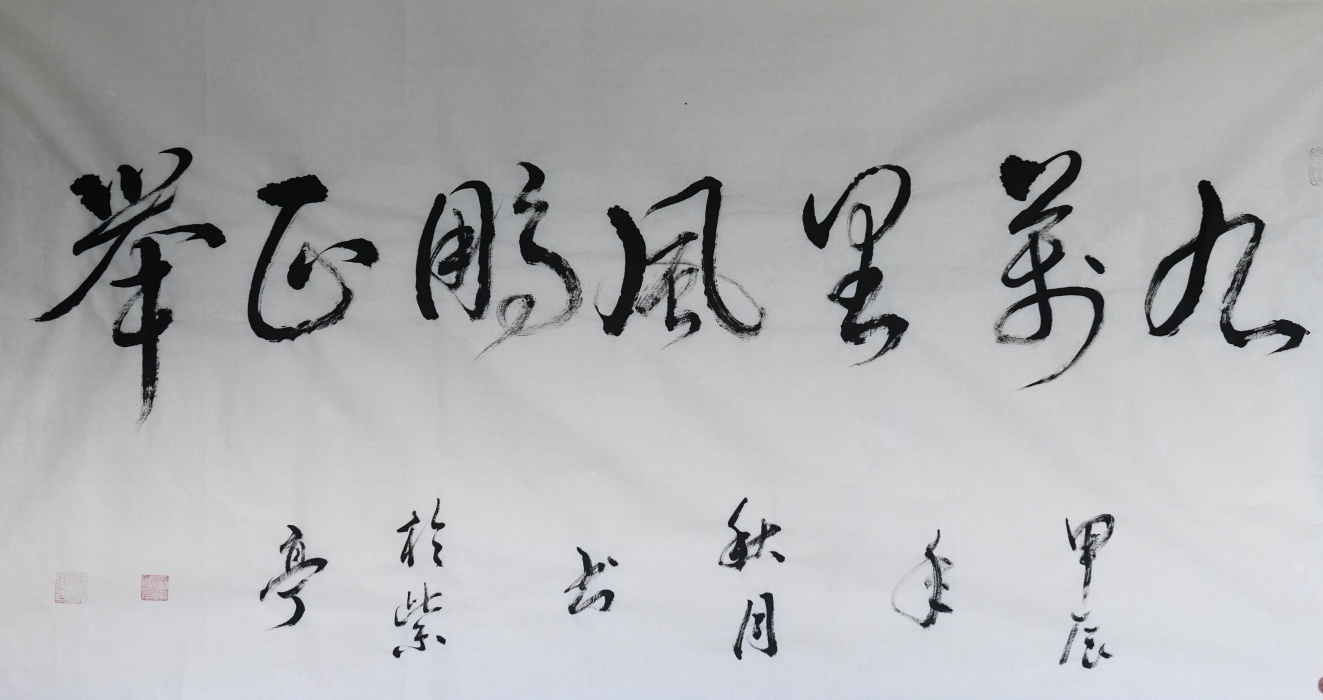 九萬里風鹏正举
甲辰年秋月书於紫亭